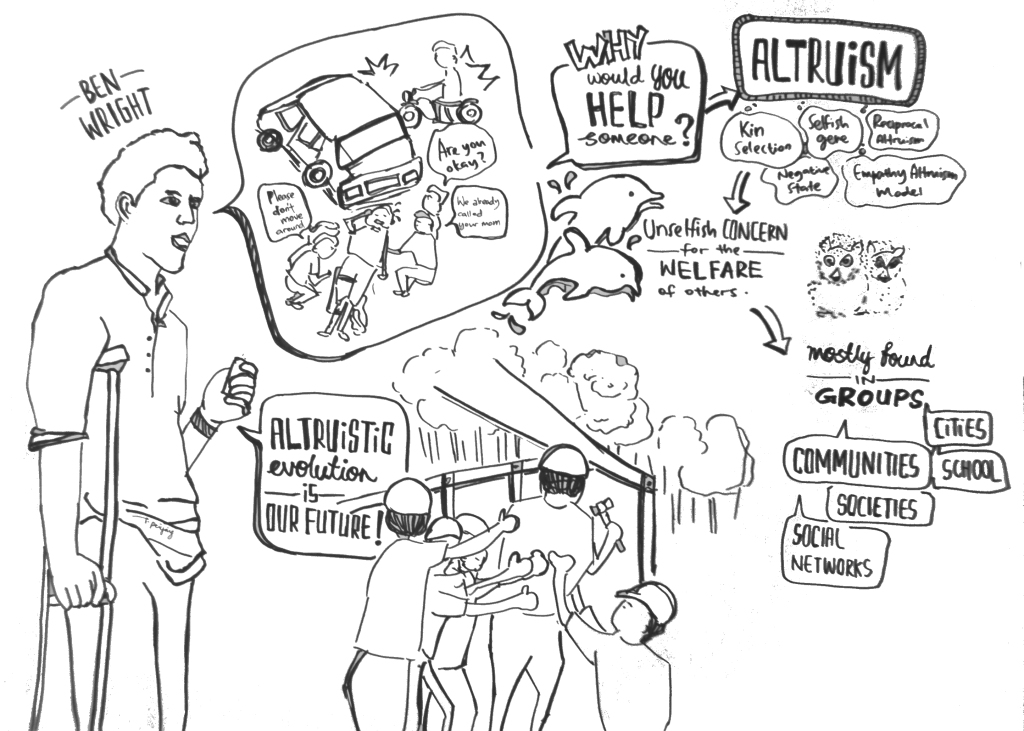 BEN
WRIGHT
Are you
okay?
Please
don't
move
around
We already
called
your mom
WHY
would you
HELP
someone?
ALTRUiSM
Kin
Selection
Selfish
gene
Reciprocal
Altruism
Negative
State
Empathy Altruism
Model
Unselfish CONCERN
for the
WELFARE
of others.
mostly found
IN
GROUPS
CiTiES
COMMUNITIES
SCHOOL
SOCIETIES
SOCIAL
NETWORKS
ALTRUiSTiC
evolution
is
OUR FUTURE!